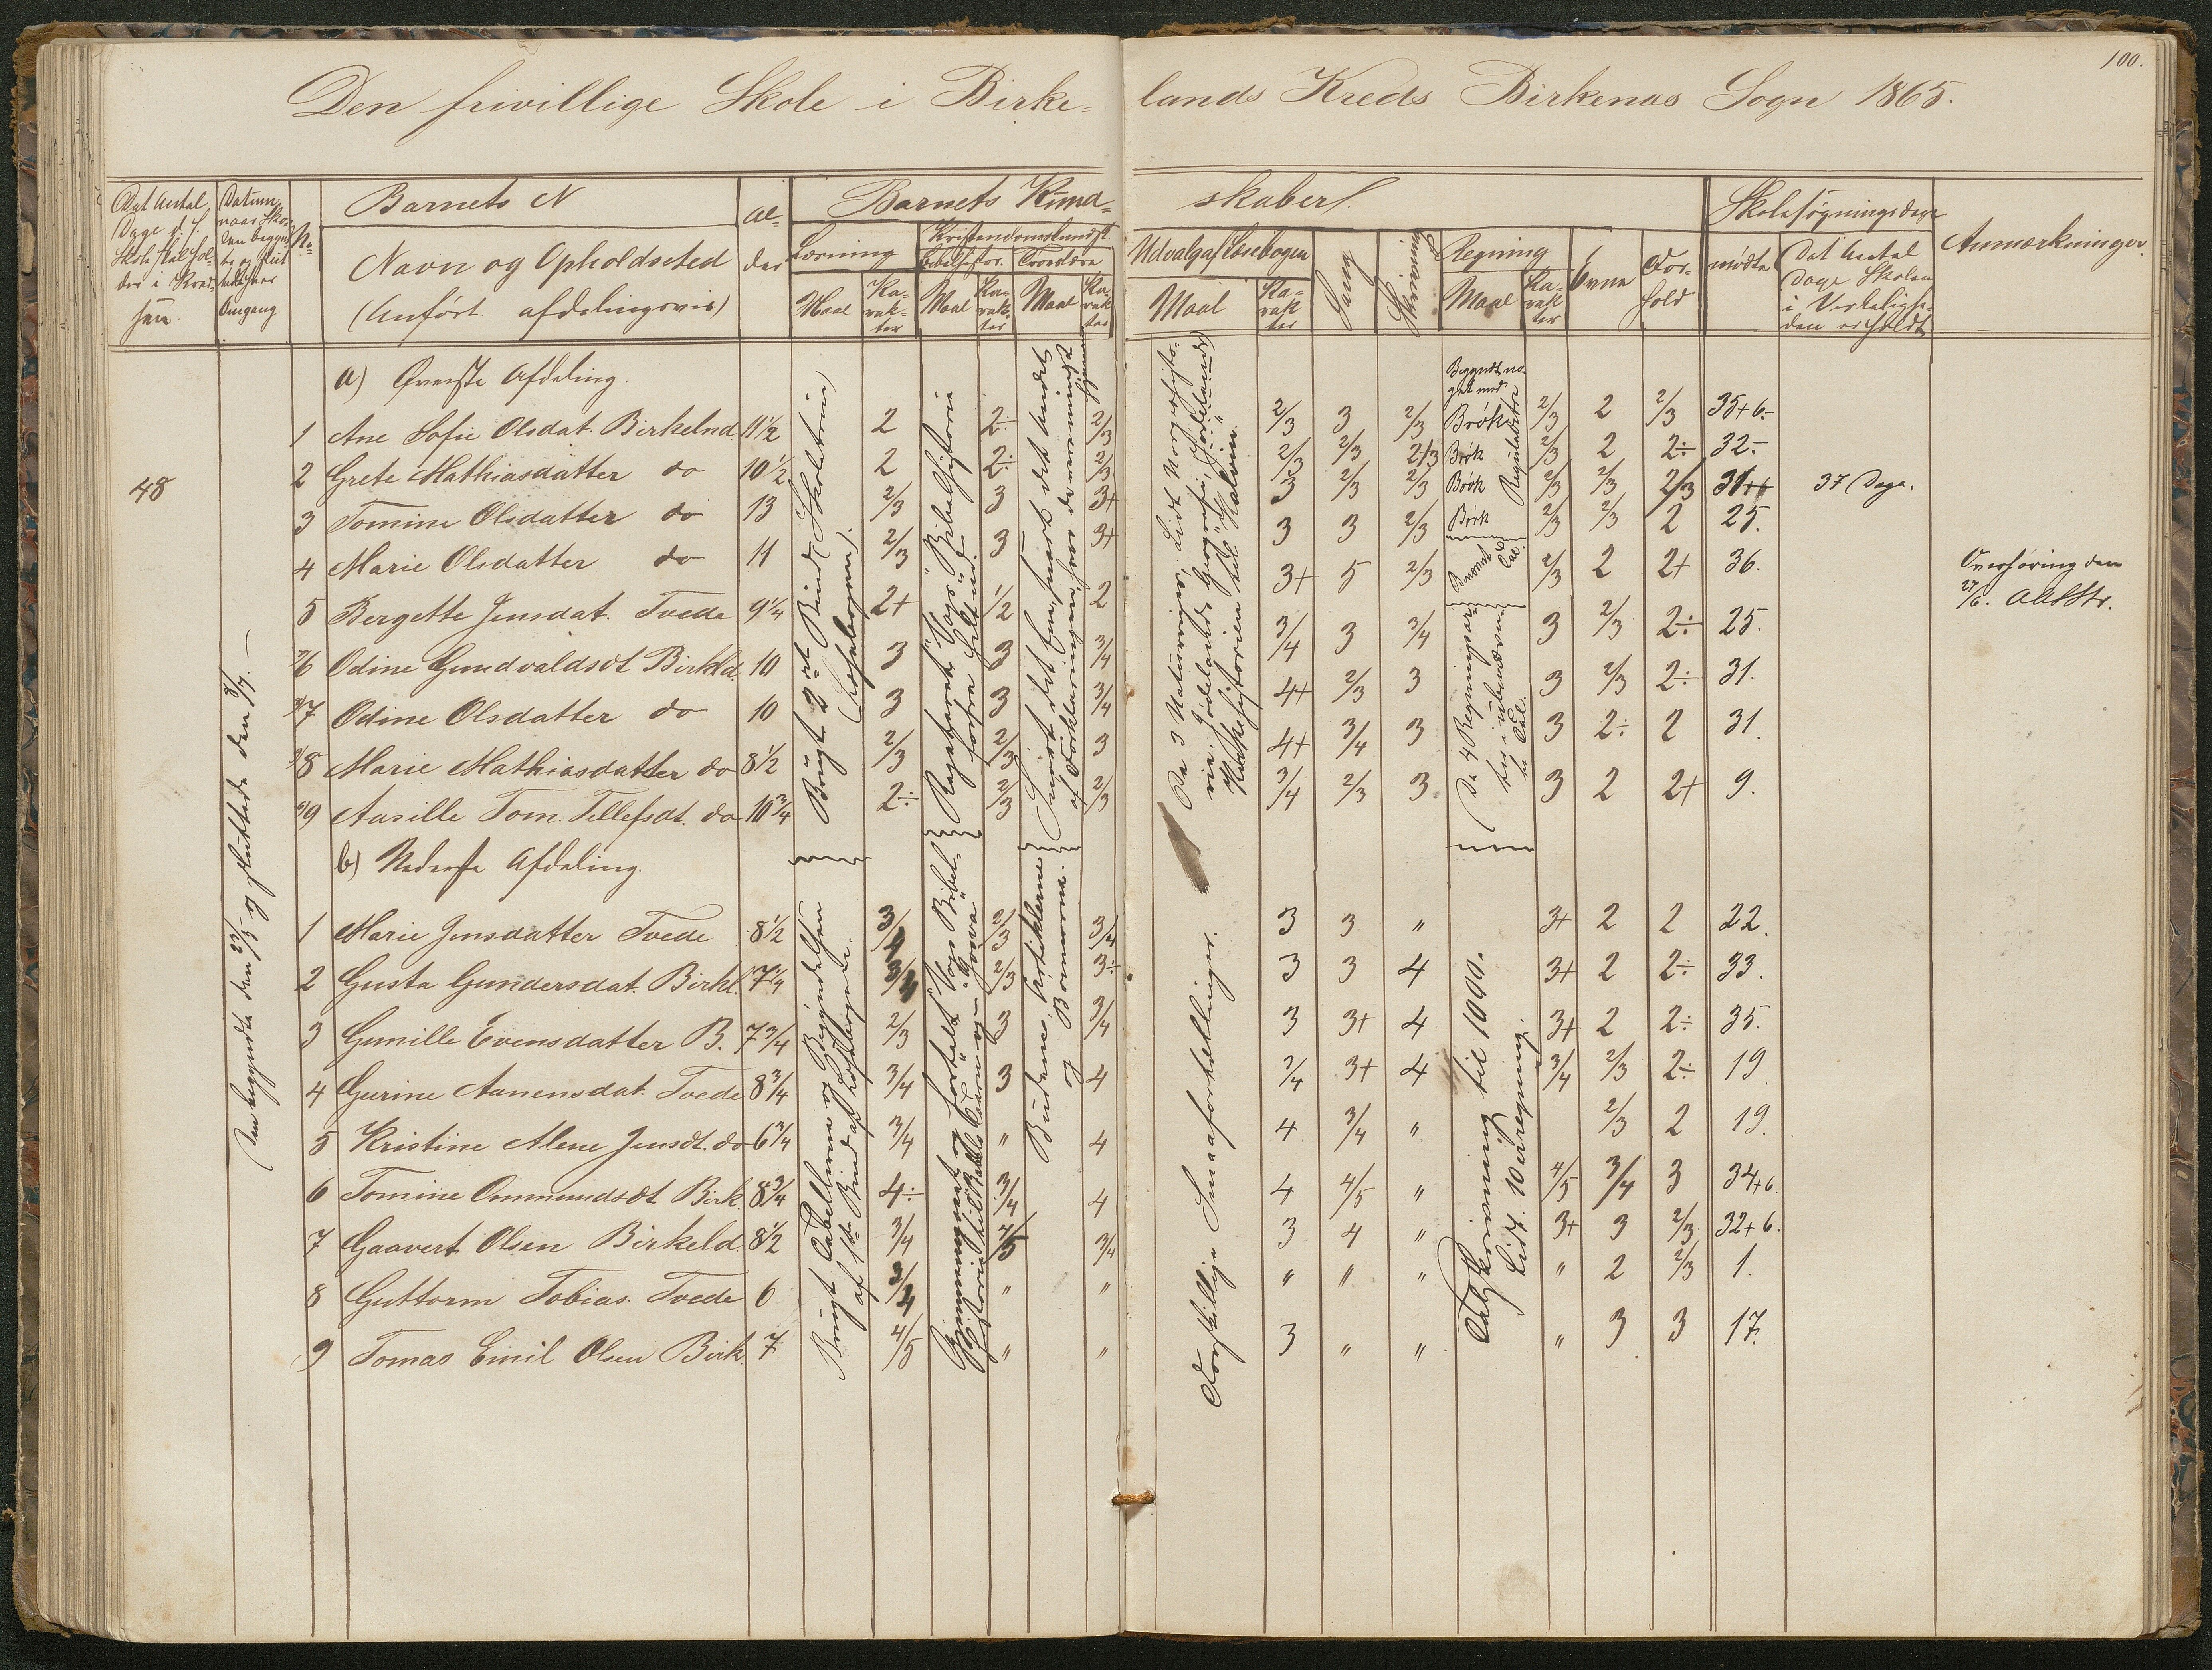 100.
Den frivillige Skole i Birkelands Kreds Birkenæs Sogn 1865.
Det Antal Dage d. f. Skole skal holdes i Kredsen.
Datum, naar Skolen begyndte og sluttede hver Omgang
No
Barnets N
Navn og Opholdssted
(Anført afdelingsvis)
Alder
Barnets Kundskaber.
Læsning
Maal
Karakter
Kristendomskundsk.
Bibelhistor.
Maal
Karakter
Troeslære
Maal
Karakter
Udvalg af Læsebogen
Maal
Karakter
Sang
Skrivning
Regning
Maal
Karakter
Evne
Forhold
Skolesøgningsdage
mødte
Det Antal Dage Skolen i Virkeligheden er holdt
Anmærkninger.
48
Den begyndte den 23/5 og sluttede den 8/7. —
a) Øverste Afdeling.
1 Ane Sofie Olsdat. Birkelnd 11 1/2 2 2÷ 2/3 2/3 3 2/3 Brøk 2/3 2 2/3 35+6.-
2 Grete Mathiasdatter do 10 1/2 2 2÷ 2/3 2/3 2/3 2/3 Brøk 2/3 2 2÷ 32.-
3 Tomine Olsdatter do 13 2/3 3 3+ 3 2/3 2/3 Brøk 2/3 2/3 2/3 31++ 37 Dage.
4 Marie Olsdatter do 11 2/3 3 3+ 3 3 2/3 Brøk 2/3 2/3 2 25.
5 Bergette Jensdat. Tvede 9 1/4 2+ 1/2 2 3+ 5 2/3 2/3 2 2+ 36.
6 Odine Gundvaldsdt Birkld. 10 3 3 3/4 3/4 3 3/4 3 2/3 2÷ 25.
7 Odine Olsdatter do 10 3 3 3/4 4+ 2/3 3 3 2/3 2÷ 31.
8 Marie Mathiasdatter do 8 1/2 2/3 2/3 3 4+ 3/4 3 3 2÷ 2 31.
9 Aasille Tom. Tellefsdt. do 10 3/4 2÷ 2/3 2/3 3/4 2/3 3 3 2 2+ 9.
Brugt 2det Bind (Skoletrin)
(Læsebogen).
Repeteret Vogts Bibelhistorie
Begyndt noget med
De 4 Regningsarter i ubenævnte Tal.
De 3 Naturriger, Lidt Norgeshistorie, Jødelands Geografi,
Kirkehistorien til Kalvin.
Overhøring den
27/6. AbStr.
b) Nederste Afdeling.
1 Marie Jensdatter Tvede 8 1/2 3/4 2/3 3/4 3 3 " 3+ 2 2 22.
2 Gusta Gundersdat. Birkl. 7 1/4 3/4 2/3 3÷ 3 3 4 3+ 2 2÷ 33.
3 Gunille Evensdatter B. 7 3/4 2/3 3 3/4 3 3+ 4 3+ 2 2÷ 35.
4 Gurine Aanensdat. Tvede 8 3/4 3/4 3 4 3/4 3+ 4 3/4 2/3 2÷ 19
5 Kristine Alene Jensdt. do 6 3/4 3/4 " 4 4 3/4 " 2/3 2 19.
6 Tomine Ommundsdt Birk. 8 3/4 4÷ 3/4 4 4 4/5 " 4/5 3/4 3 34+6.
7 Gaavert Olsen Birkeld. 8 1/2 3/4 4/5 3/4 3 4 " 3+ 3 2/3 32+6.
8 Guttorm Tobias. Tvede 6 3/4 " " " " " " 2 2/3 1.
9 Tomas Emil Olsen Birk. 7 4/5 " " 3 " " " 3 3 17.
Brugt Tabellerne og Begyndelsen
af 1ste Bind af Læsebogene.
Budene, Artiklerne
og Bønnerne.
Forskjellige Smaafortellinger.
Talskrivning til 1000.
Lidt Hovedregning.